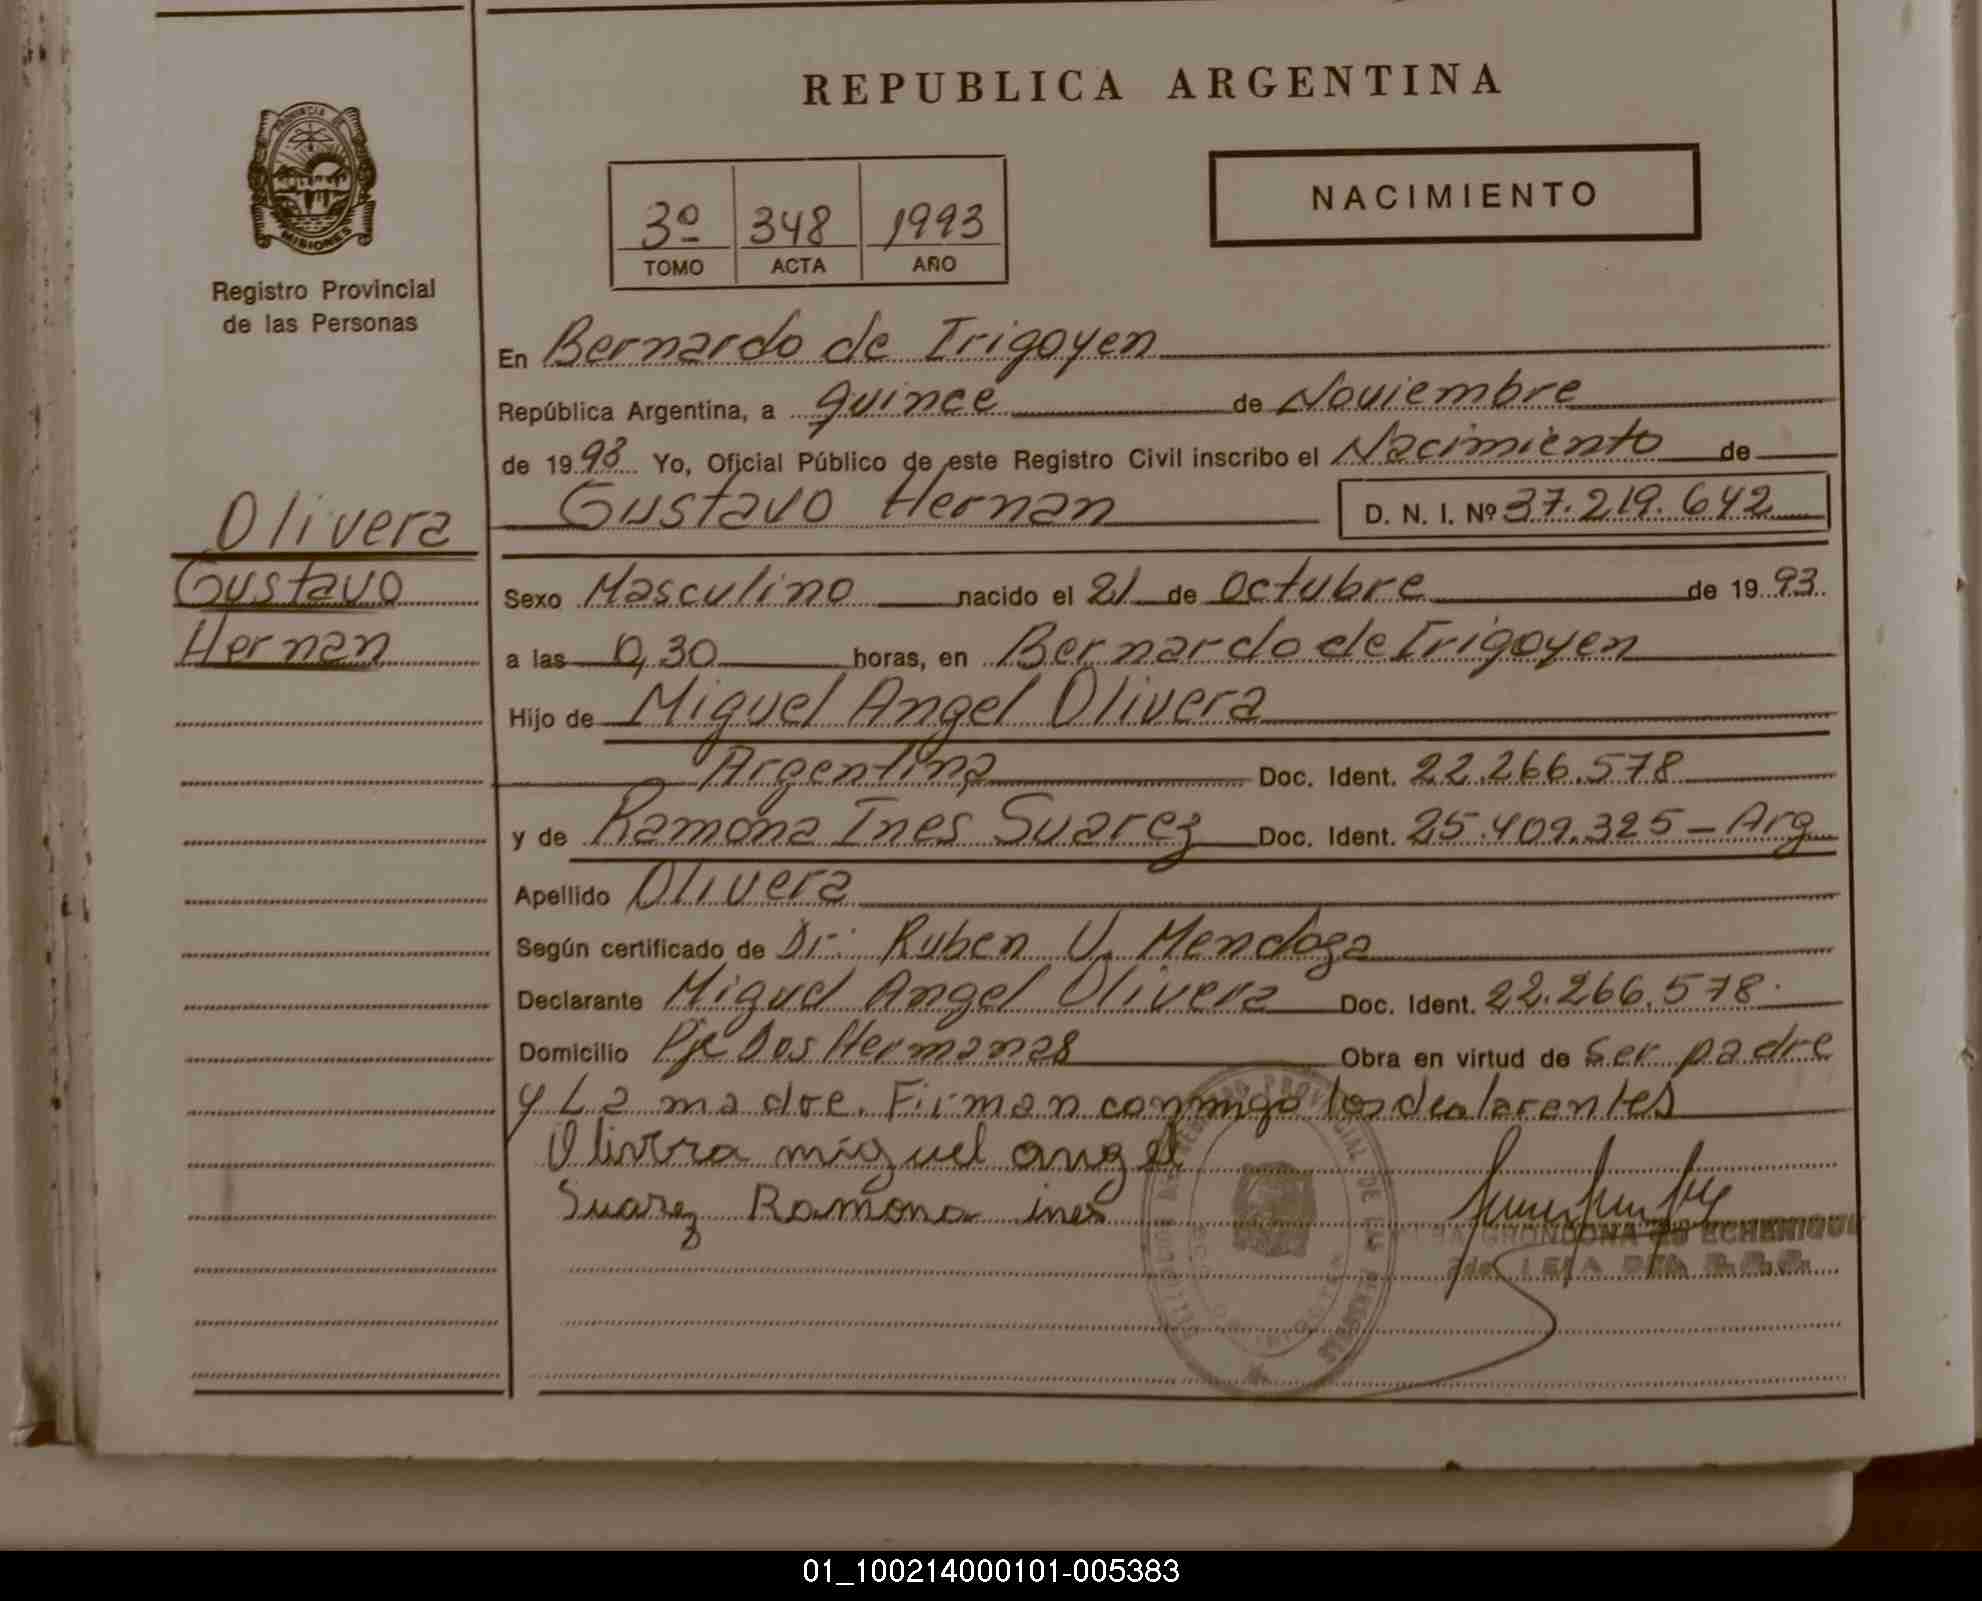 REPUBLICA ARGENTINA
PROVINCIA DE
MISIONES
Registro Provincial
de las Personas
3º 348 1993
TOMO ACTA AÑO
NACIMIENTO
En Bernardo de Irigoyen
República Argentina, a quince de Noviembre
de 1993 Yo, Oficial Público de este Registro Civil inscribo el Nacimiento de
Gustavo Hernan D. N. I. Nº 37.219.642
Olivera
Gustavo
Hernan
Sexo Masculino nacido el 21 de Octubre de 1993
a las 0,30 horas, en Bernardo de Irigoyen
Hijo de Miguel Angel Olivera
Argentina Doc. Ident. 22.266.578
y de Ramona Ines Suarez Doc. Ident. 25.409.325 - Arg
Apellido Olivera
Según certificado de Dr: Ruben U. Mendoza
Declarante Miguel Angel Olivera Doc. Ident. 22.266.578.
Domicilio Pje Dos Hermanas Obra en virtud de Ser padre
y La madre. Firman conmigo los declarentes
Olivera miguel angel
Suarez Ramona ines
GRONDONA DE ECHENIQUE
01_100214000101-005383